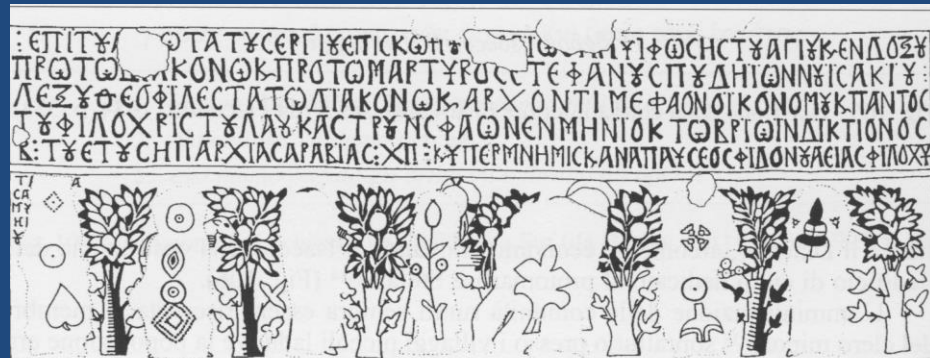 :ΕΠΙΤȢΑ ΩΤΑΤȢCΕΡΓΙȢΕΠΙΕΚΩΠȢ ΤΙΩ ΨΙΦΩCΗCΤȢΑΓΙȢΚΕΝΔΟΞȢ
ΠΡΩΤΩ ΚΟΝΩΚΠΡΟΤΩΜΑΡΤΥΡΟCC ΤΕΦΑΝȢCΠȢΔΗΙΩΝΝȢΙCΑΚΙȢ:
ΛΕΞȢΘΕΟΦΙΛΕCΤΑΤΩΔΙΑΚΟΝΩΚΑΡΧΟΝΤΙΜΕΦΑΟΝΟΙΚΟΝΟΜȢΚΠΑΝΤΟC
ΤȢΦΙΛΟΧΡΙCΤȢΛΑȢΚΑCΤΡȢΜΕΦΑΩΝΕΝΜΗΝΙΟΚΤΩΒΡΙΩΙΝΔΙΚΤΙΟΝΟC
Β:ΤȢΕΤȢCΗΠΑΡΧΙΑCΑΡΑΒΙΑC:ΧΠ:ΚȢΠΕΡΜΝΗΜΙCΚΑΝΑΠΑΥCΕΟCΦΙΔΟΝȢΑΕΙΑCΦΙΛΟΧȢ
ΤΙ Α
CΑ
ΜȢ
ΚΙ
Ȣ